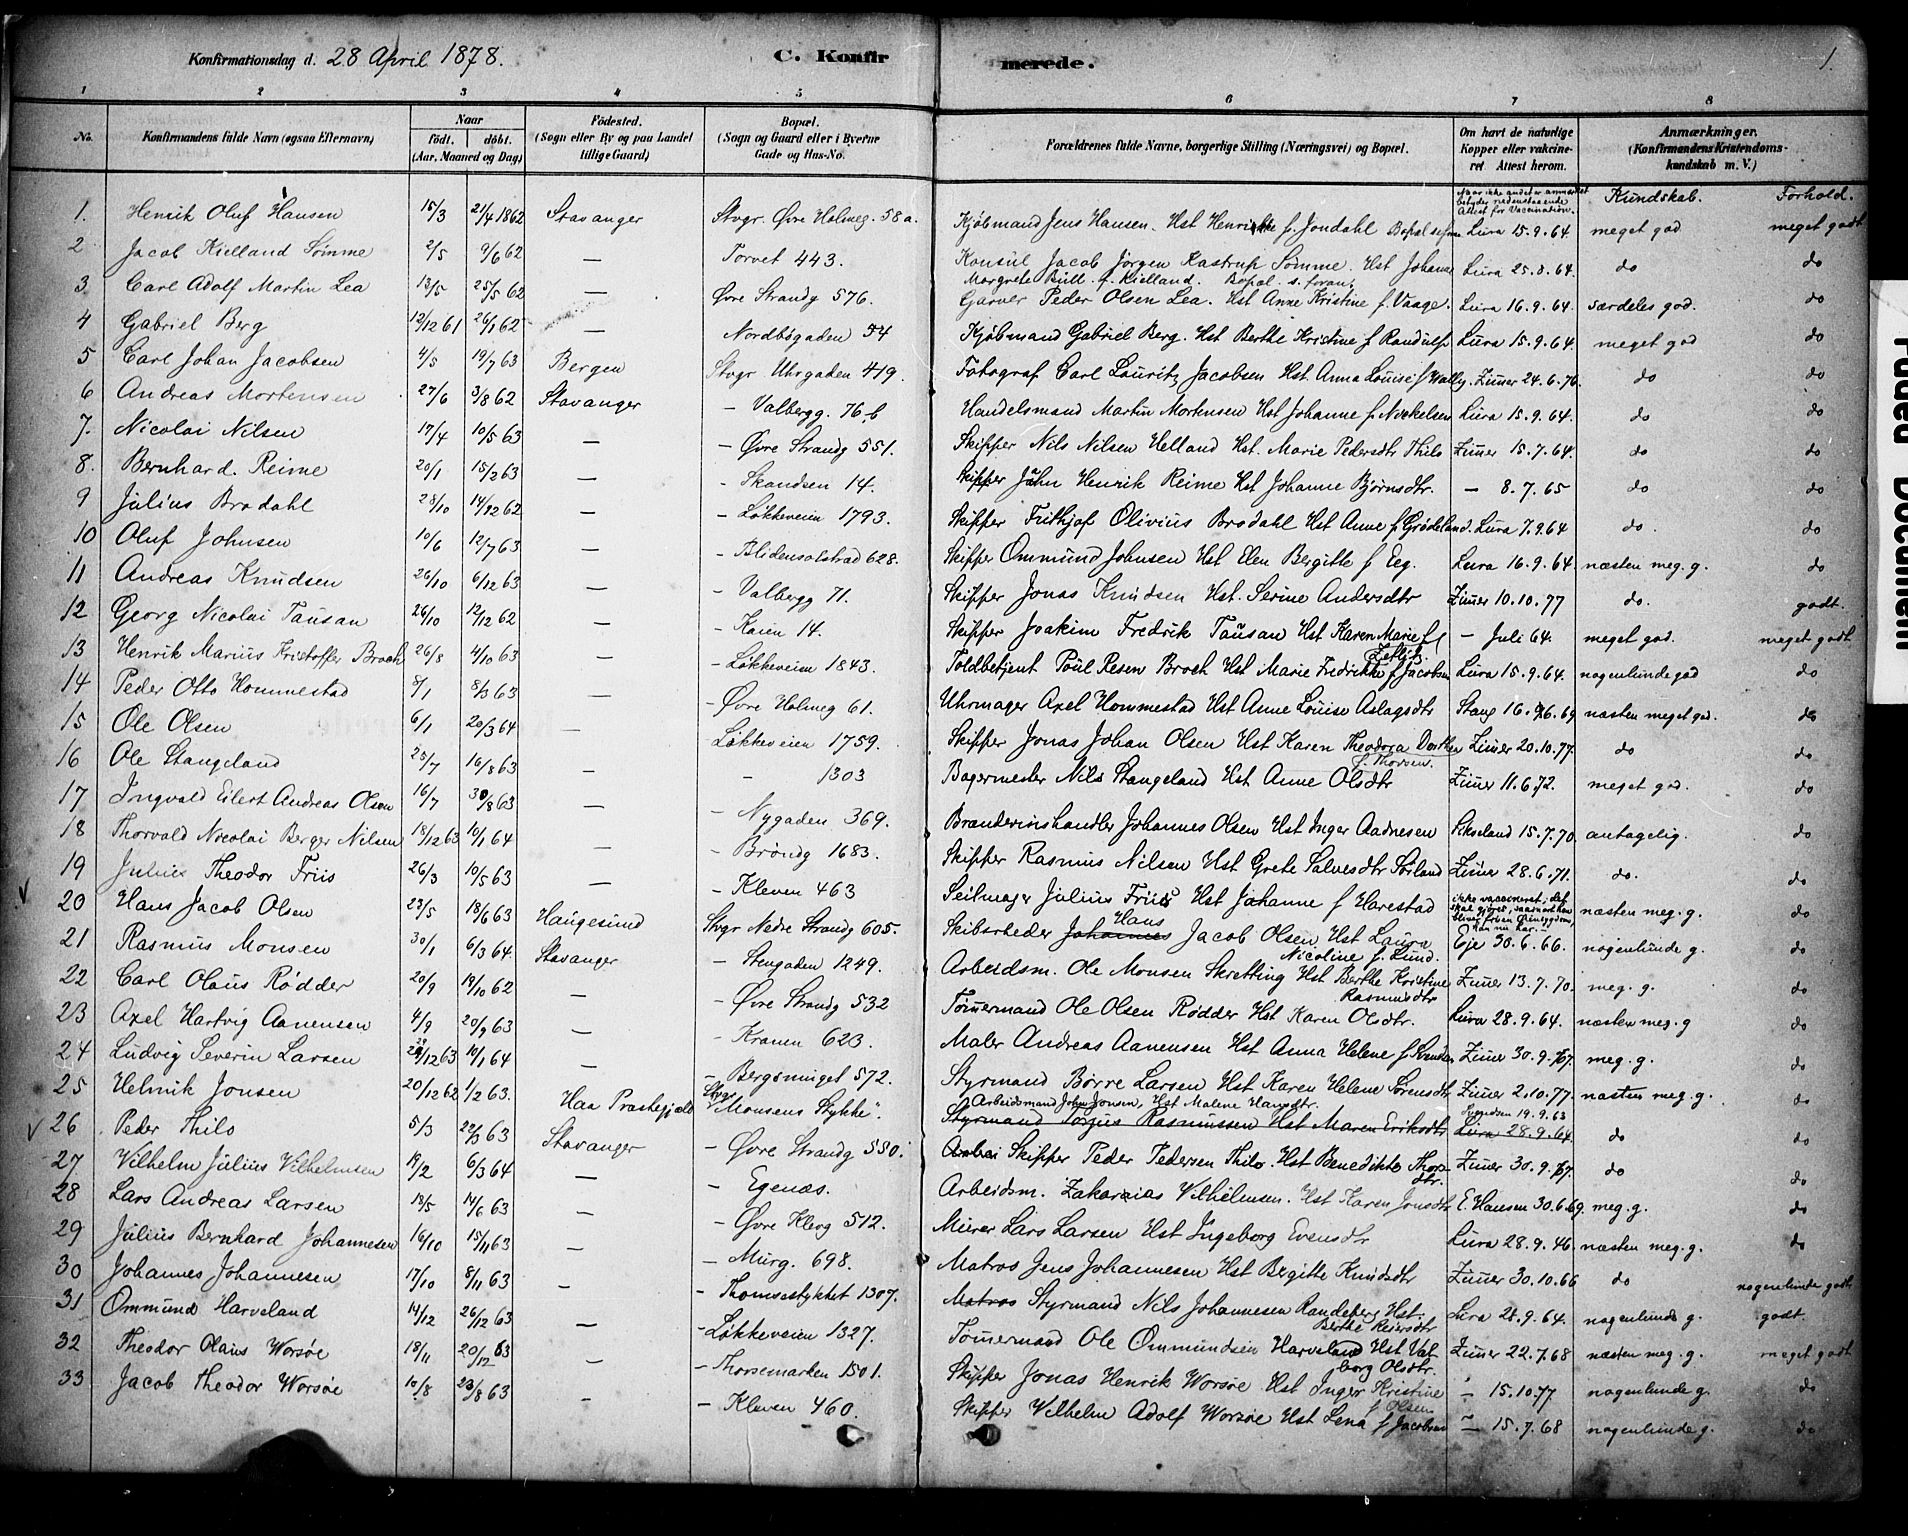 Konfirmationsdag d. 28 April 1878. C. Konfirmerede. 1.
1 2 3 4 5 6 7 8
No. Konfirmandens fulde Navn (ogsaa Efternavn) Naar födt. döbt. (Aar, Maaned og Dag) Födested. (Sogn eller By og paa Landet tillige Gaard) Bopæl. (Sogn og Gaard eller i Byerne Gade og Hus-No. Forældrenes fulde Navne, borgerlige Stilling (Næringsvei) og Bopæl. Om havt de naturlige Kopper eller vaccineret. Attest herom. Anmærkninger. (Konfirmandens Kristendomskundskab m. V.)
Naar ikke andet er anmærket betyder nedenstaaende Attest for Vaccination. Kundskab. Forhold.
1. Henrik Oluf Hansen 15/3 21/4 1862 Stavanger Stvgr. Øvre Holmeg. 58 a. Kjøbmand Jens Hansen. Hst Henrikke f. Jondahl Lura 15.9.64. meget god meget godt
2 Jacob Kielland Sømme 2/5 9/6 62 — Torvet 443. Konsul Jacob Jörgen Kastrup Sømme. Hst Johanne Margrete Bull f. Kielland. Bopæl s. foran. Lura 25.8.64. do do
3 Carl Adolf Martin Lea 13/5 25/5 62 — Øvre Strandg 576. Garver Peder Olsen Lea. Hst Anne Kristine f. Vaage. Lura 16.9.64. særdeles god. do
4 Gabriel Berg 12/12 61 26/1 62 — Nordbøgaden 54 Kjøbmand Gabriel Berg. Hst Berthe Kristine f Randulf Lura 15.9.64. meget god do
5 Carl Johan Jacobsen 4/5 19/7 63 Bergen Stvgr Uhrgaden 419. Fotograf Carl Lauritz Jacobsen Hst. Anna Louise f Wally. Zimer 24.6.76. do do
6 Andreas Mortensen 27/6 3/8 62 Stavanger — Valbergg. 76 b Handelsmand Martin Mortensen Hst Johanne f. Lura 15.9.64. do do
7. Nicolai Nilsen 17/4 10/5 63 — — Øvre Strandg 551. Skipper Nils Nilsen Helland Hst. Marie Pedersdtr Thilo Zimer 15.7.64. do do
8. Bernhard Reime 20/1 15/2 63 — — Skandsen 14. Skipper John Henrik Reime Hst Johanne Bjørnsdtr. — 8.7.65 do do
9 Julius Brodahl 28/10 14/12 62 — — Løkkeveien 1793. Skipper Frithjof Olivius Brodahl Hst Anne f Grødeland. Lura 7.9.64 do. do
10 Oluf Johnsen 10/6 12/7 63 — — Blidensolstrad 628. Skipper Ommund Johnsen Hst Elen Bergitte f Eeg. Lura 16.9.64 næsten meg. g. do
11 Andreas Knudsen 26/10 6/12 63 — — Valbergg 71. Skipper Jonas Knudsen Hst. Serine Andersdtr Zimer 10.10.77 do. godt.
12 Georg Nicolai Tausan 26/10 12/12 62 — — Kaien 14. Skipper Joakim Fredrik Tausan Hst Karen Marie f Zetlitz. — Juli 64. meget god. meget godt
13 Henrik Marius Kristoffer Broch 26/8 4/10 63 — — Løkkeveien 1843. Toldbetjent Poul Resen Broch Hst Marie Fredrikke f Jacobsen Lura 15.9.64. nogenlunde god do
14 Peder Otto Hommestad 8/1 8/3 63 — — Øvre Holmeg 61. Uhrmager Axel Hommestad Hst Anne Louise Aslagsdtr Stang næsten meget god. do
15 Ole Olsen 6/1 20/3 64 — — Løkkeveien 1759. Skipper Jonas Johan Olsen Hst Karen Theodora Dorthea f. Thorsen. Zimer 20.10.77. do do
16 Ole Stangeland 25/7 16/8 63 — — 1303 Bagermester Nils Stangeland Hst Anne Olsdtr Zimer 11.6.72. meget god. do
17 Ingvald Eilert Andreas Olsen 16/7 30/8 63 — — Nygaden 369. Brændevinshandler Johannes Olsen Hst Inger Aadnesen 15.7.70 antagelig. do
18 Thorvald Nicolai Berger Nilsen 18/12 63 10/1 64 — — Brøndg 1683. Skipper Rasmus Nilsen Hst Grete Salvesdtr Sørland Zimer 28.6.71. do. do
19 Julius Theodor Friis 26/3 10/5 63 — — Kleven 463 Seilmager Julius Friis Hst Johanne f Harestad ikke vaccineret; det skal gjøres, saasnart han bliver fri en Øiensygdom, han nu har. næsten meg. g. do
20 Hans Jacob Olsen 23/5 18/6 63 Haugesund Stvgr Nedre Strandg 605. Skibsreder Johannes Hans Jacob Olsen Hst Laura Nicoline f. Lund. Eje 30.6.66. nogenlunde g. do
21 Rasmus Monsen 30/1 6/3 64 Stavanger — Stengaden 1249. Arbeidsm. Ole Monsen Skretting Hst Berthe Kristine Rasmusdtr Zimer 13.7.70. meg. g. do
22 Carl Olaus Rødder 20/9 19/10 62 — — Øvre Strandg 532 Tømmermand Ole Olsen Rødder Hst Karen Olsdtr. Lura 28.9.64. næsten meg. g do
23 Axel Hartvig Aanensen 4/9 20/9 63 — Kranen 623. Maler Andreas Aanensen Hst Anna Helene f Svendsen Zimer 30.9.67. meg. g. do
24 Ludvig Severin Larsen 29/12 63 10/1 64 — — Bergsmuget 572. Styrmand Børre Larsen Hst Karen Helene Sørensdtr Zimer 2.10.77. næsten meg. g. do
25 Helmik Jonsen 20/12 62 1/2 63. Haa Præstegjæld Stvgr "Monsens Stykke". Arbeidsmand John Jonsen, Hst Malene Hansdtr. Styrmand Torjus Rasmussen Hst Maren Eriksdtr Svendsen 19.9.63 Lura 28.9.64. do do
26 Peder Thilo 5/3 22/3 63 Stavanger — Øvre Strandg 550. Arbei Skipper Peder Pedersen Thilo. Hst Benedikte Thorsdtr. Zimer 30.9.67. do do
27 Vilhelm Julius Vilhelmsen 19/2 6/3 64 — — Egenæs. Arbeidsm. Zakarias Vilhelmsen. Hst Karen Jonsdtr E. Hansen 30.6.69. meg. g. do
28 Lars Andreas Larsen 18/5 14/6 63 — — Øvre Klevg 512. Murer Lars Larsen Hst Ingeborg Evensdtr Lura 28.9.46. næsten meg. g. do
29 Julius Bernhard Johannesen 16/10 15/11 63 — — Murg. 698. Matros Jens Johannesen Hst Bergitte Knudsdtr Zimer 30.10.66 do nogenlunde godt
30 Johannes Johannesen 17/10 8/11 63 — — Thomsestykket 1307. Matros Styrmand Nils Johannesen Randeberg Hst. Berthe Reiersdtr Lura 28.9.64. nogenlunde g. godt.
31 Ommund Harveland 14/12 26/12 63 — — Løkkeveien 1327. Tømmermand Ole Ommundsen Harveland Hst Valborg Olsdtr. Zimer 22.7.68 næsten meg. g. meget godt
32 Theodor Olaus Worsøe 18/11 20/12 63 — — Thorsemarken 1501. Skipper Jonas Henrik Worsøe Hst Inger Kristine f Olsen — 15.10.77 nogenlunde g. do
33 Jacob Theodor Worsøe 10/8 23/8 63 — — Kleven 460. Skipper Vilhelm Adolf Worsøe Hst Lena f Jacobsen — 15.7.68 nogenlunde g. do
Faded Document